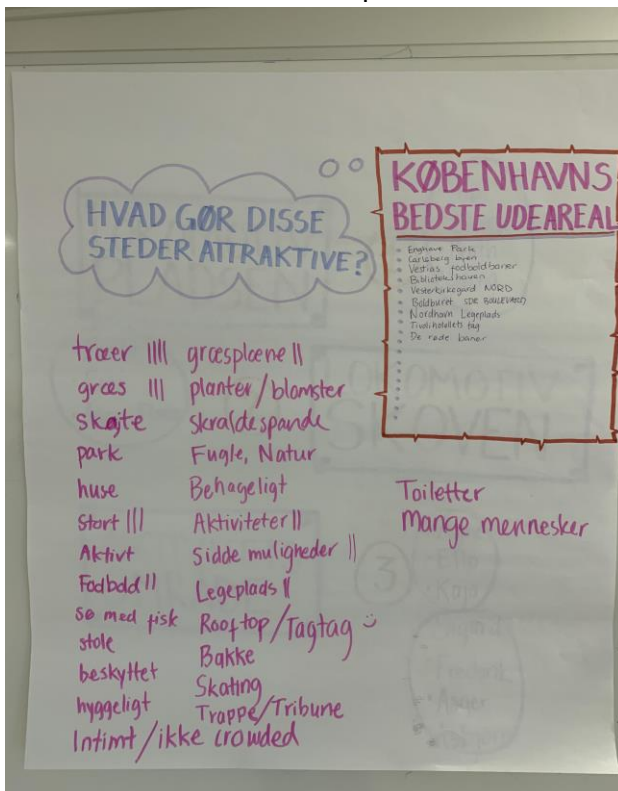 HVAD GØR DISSE
STEDER ATTRAKTIVE?
KØBENHAVNS
BEDSTE UDEAREAL
Enghave Park
Carlsberg byen
Vestias fodboldbaner
Bibliotekshaven
Vesterkirkegård NORD
Boldburet SDR BOULEVARD
Nordhavn Legeplads
Tivolihotellets tag
De røde baner
træer ||||
græs |||
skøjte
park
huse
Stort |||
Aktivt
Fodbold ||
sø med fisk
stole
beskyttet
hyggeligt
Intimt/ikke crowded
græsplæne ||
planter/blomster
skraldespande
Fugle, Natur
Behageligt
Aktiviteter ||
Sidde muligheder ||
Legeplads ||
Rooftop/Tagtag
Bakke
Skating
Trappe/Tribune
Toiletter
Mange mennesker
LOKOMOTIV
SKOVEN
3
Kaja
Frederik
Asger